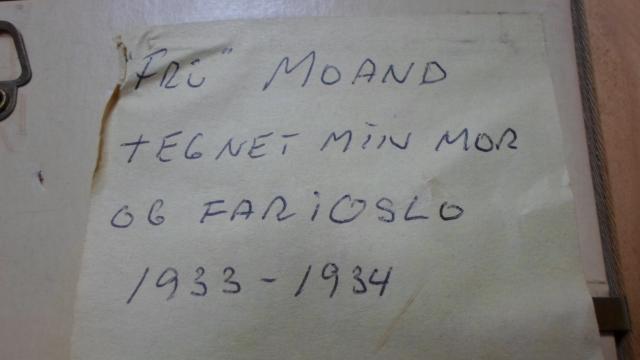 "FRÜ" MOAND
TEGNET MIN MOR
OG FAR I OSLO
1933-1934